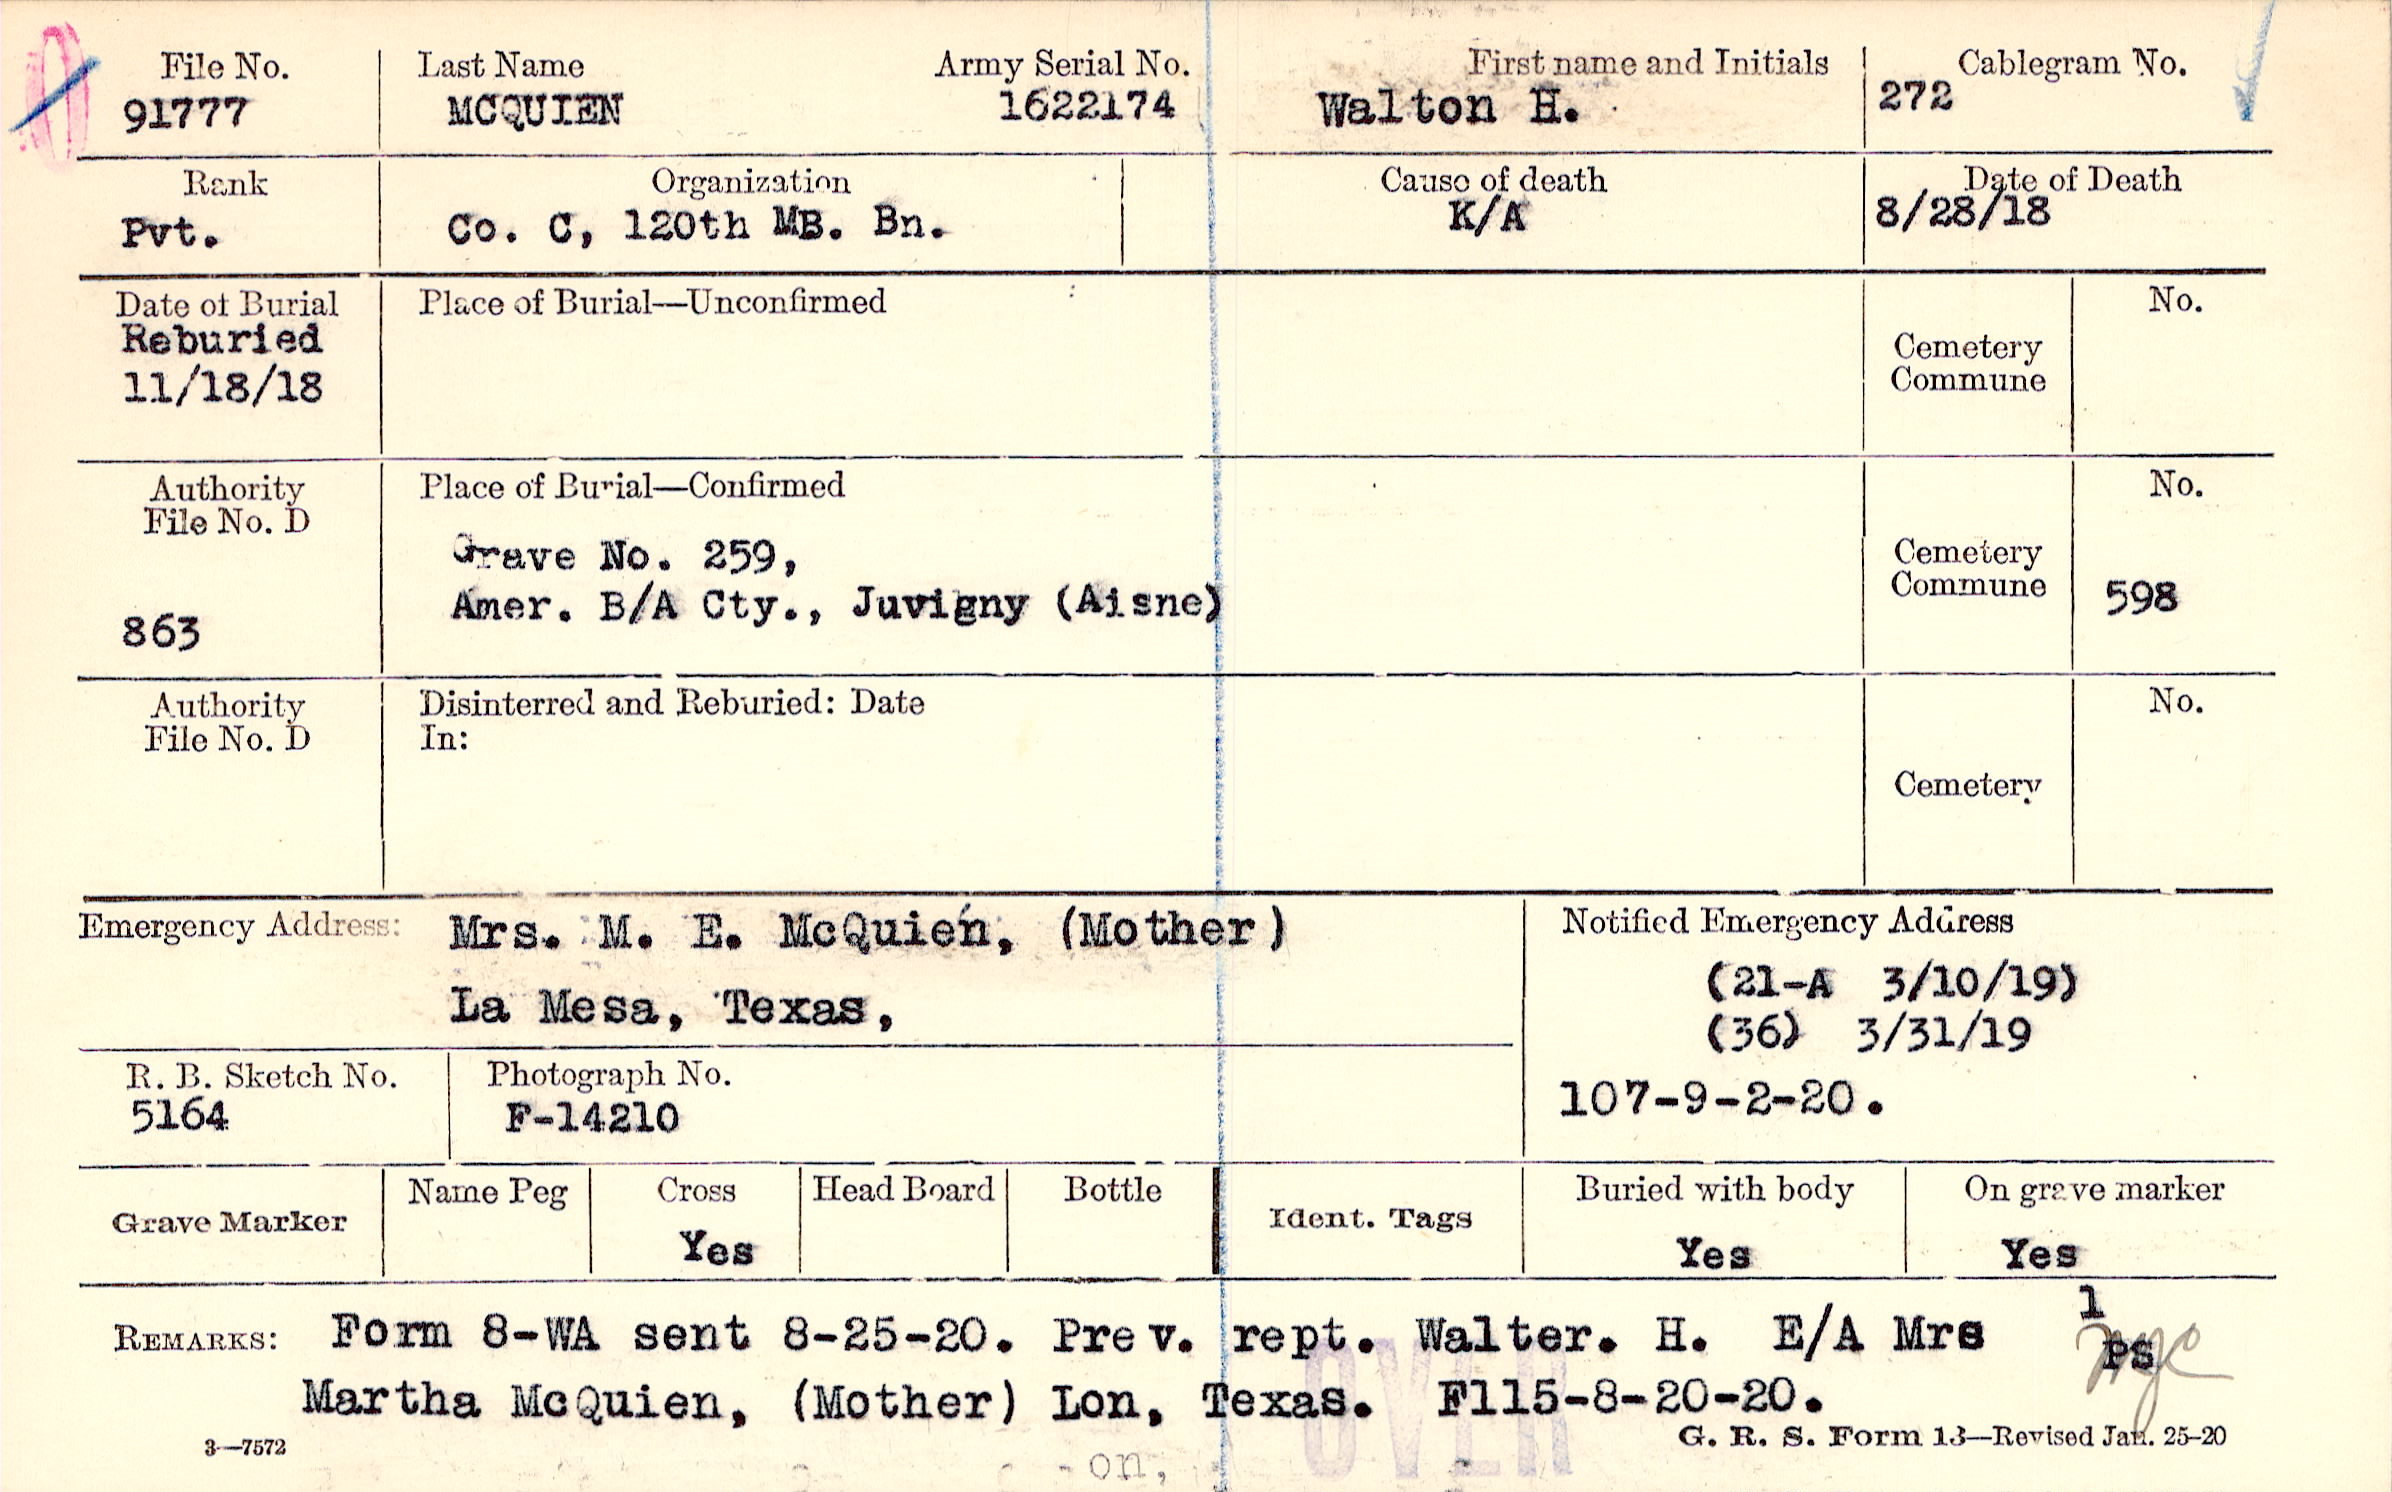 File No. Last Name Army Serial No. First name and Initials Cablegram No.
91777 MCQUIEN 1622174 Walton H. 272
Rank Organization Cause of death Date of Death
Pvt. Co. C, 120th MB. Bn. K/A 8/28/18
Date of Burial Place of Burial—Unconfirmed No.
Reburied
11/18/18
Cemetery
Commune
Authority Place of Burial—Confirmed No.
File No. D
Grave No. 259,
Amer. B/A Cty., Juvigny (Aisne)
Cemetery
Commune 598
863
Authority Disinterred and Reburied: Date No.
File No. D In:
Cemetery
Emergency Address: Mrs. M. E. McQuien, (Mother)
La Mesa, Texas,
Notified Emergency Address
(21-A 3/10/19)
(36) 3/31/19
107-9-2-20.
R. B. Sketch No. Photograph No.
5164 F-14210
Grave Marker Name Peg Cross Head Board Bottle Ident. Tags Buried with body On grave marker
Yes Yes Yes
1
PS
REMARKS: Form 8-WA sent 8-25-20. Prev. rept. Walter. H. E/A Mrs
Martha McQuien, (Mother) Lon, Texas. F115-8-20-20.
OVER
3—7572 G. R. S. Form 13—Revised Jan. 25-20
on,